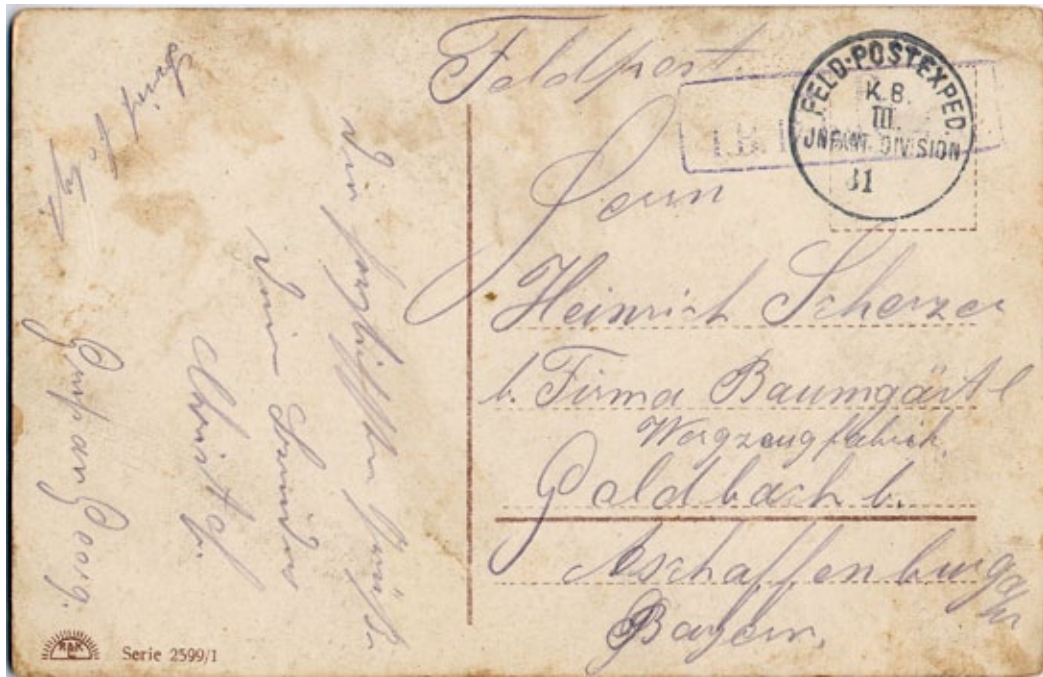 Feldpost.
FELD-POSTEXPED.
K.B.
III.
JNFANT. DIVISION
31
Herrn
Heinrich Scherzer
b. Firma Baumgärtl
Wergzeugfabrick.
Goldbach b.
Aschaffenburg a/M
Bayern.
Die herzlichsten Grüße
Dein Bruder
Christof.
Gruß an Georg.
Serie 2599/1